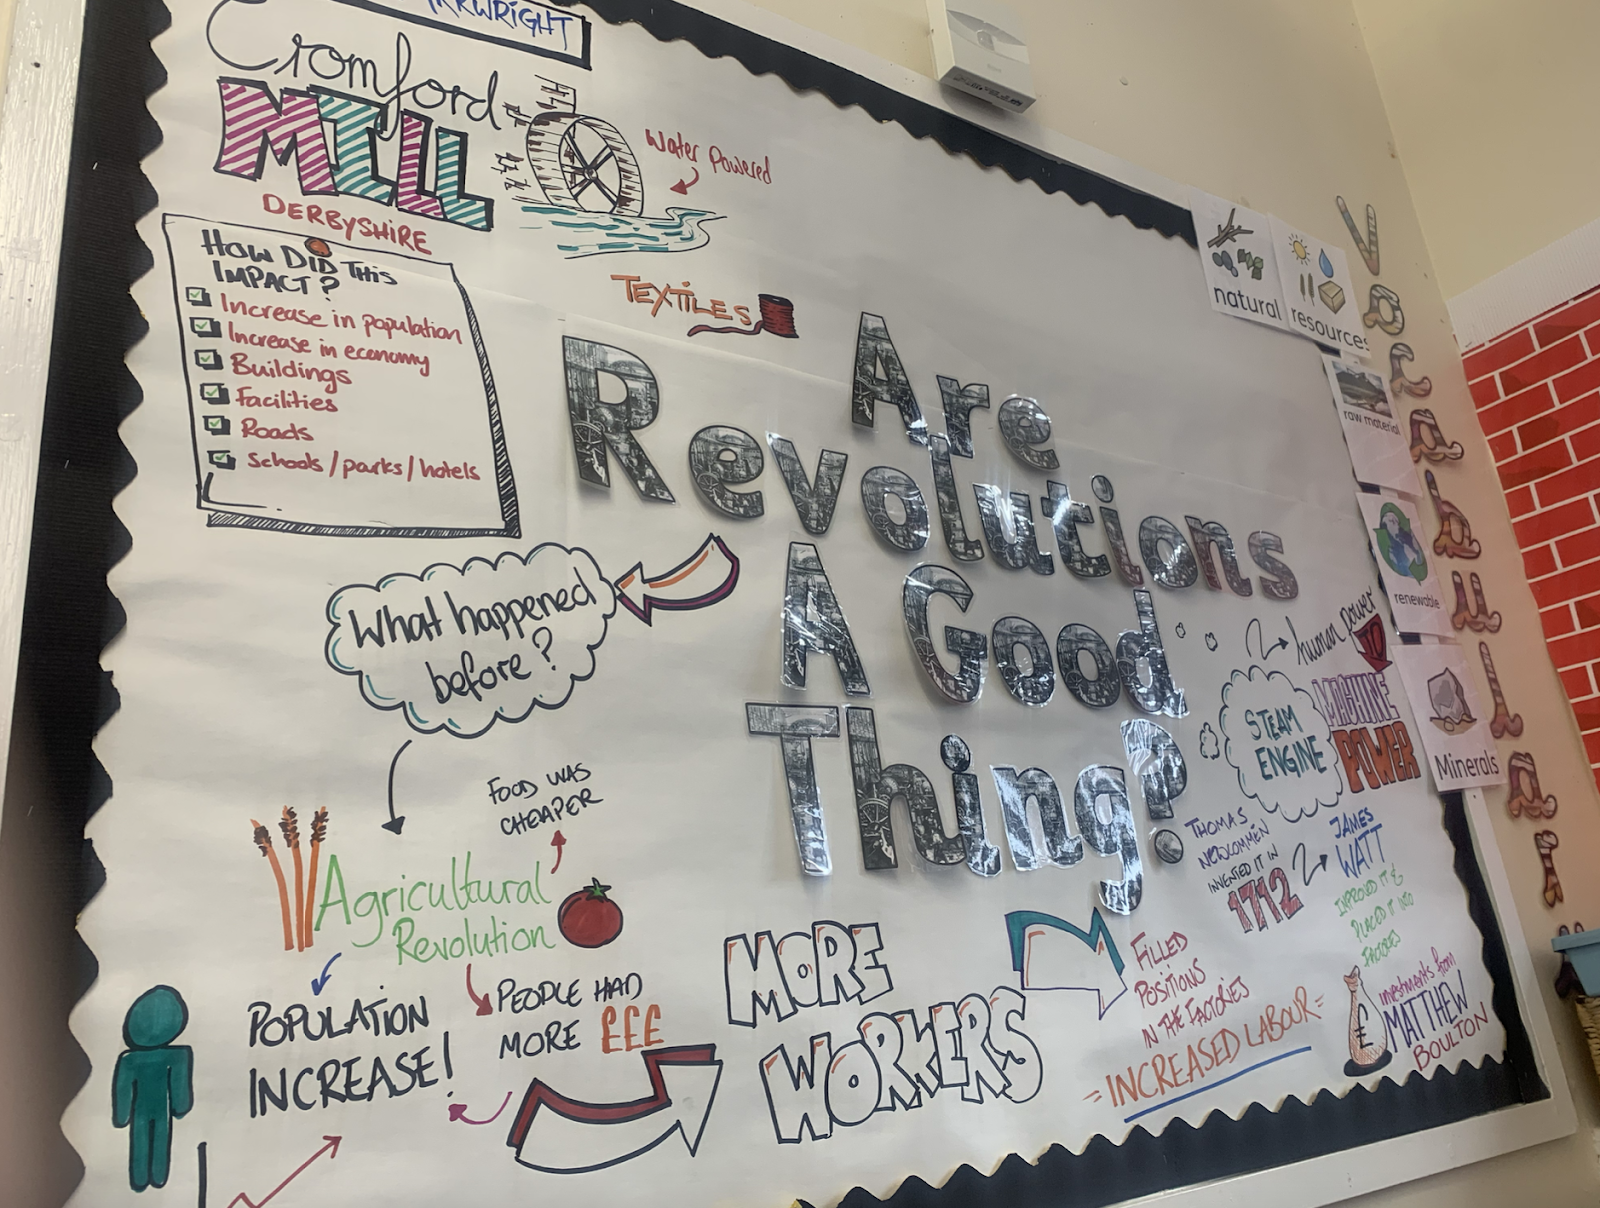 Cromford
MILL
DERBYSHIRE
Water Powered
TEXTILES
HOW DID THIS
IMPACT?
Increase in population
Increase in economy
Buildings
Facilities
Roads
Schools / parks / hotels
Are
Revolutions
A Good
Thing?
What happened
before?
FOOD WAS
CHEAPER
Agricultural
Revolution
POPULATION
INCREASE!
PEOPLE HAD
MORE £££
MORE
WORKERS
FILLED
POSITIONS
IN THE FACTORIES
= INCREASED LABOUR =
human power
TO
MACHINE
POWER
STEAM
ENGINE
THOMAS
NEWCOMMEN
INVENTED IT IN
1712
JAMES
WATT
IMPROVED IT &
PLACED IT INTO
FACTORIES
£
investments from
MATTHEW
BOULTON
Vocabulary
natural
resources
raw material
renewable
Minerals